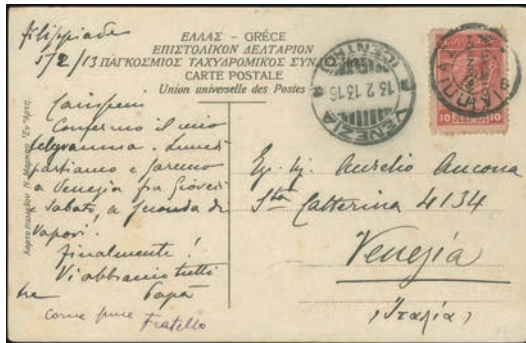 Filippiade
5/2/13
ΕΛΛΑΣ – GRÉCE
ΕΠΙΣΤΟΛΙΚΟΝ ΔΕΛΤΑΡΙΟΝ
ΠΑΓΚΟΣΜΙΟΣ ΤΑΧΥΔΡΟΜΙΚΟΣ
CARTE POSTALE
Union universelle des Postes
VENEZIA
CENTRO
10 10
Carissimi
Confermo il mio
telegramma.
partiamo e saremo
a Venezia fra Giovedi
Sabato, a seconda di
Vapori.
Finalmente!
Vi abbraccio tutti
Papà
come pure Fratello
Aurelio Ancona
Sta Catterina 4134
Venezia
(Italia)